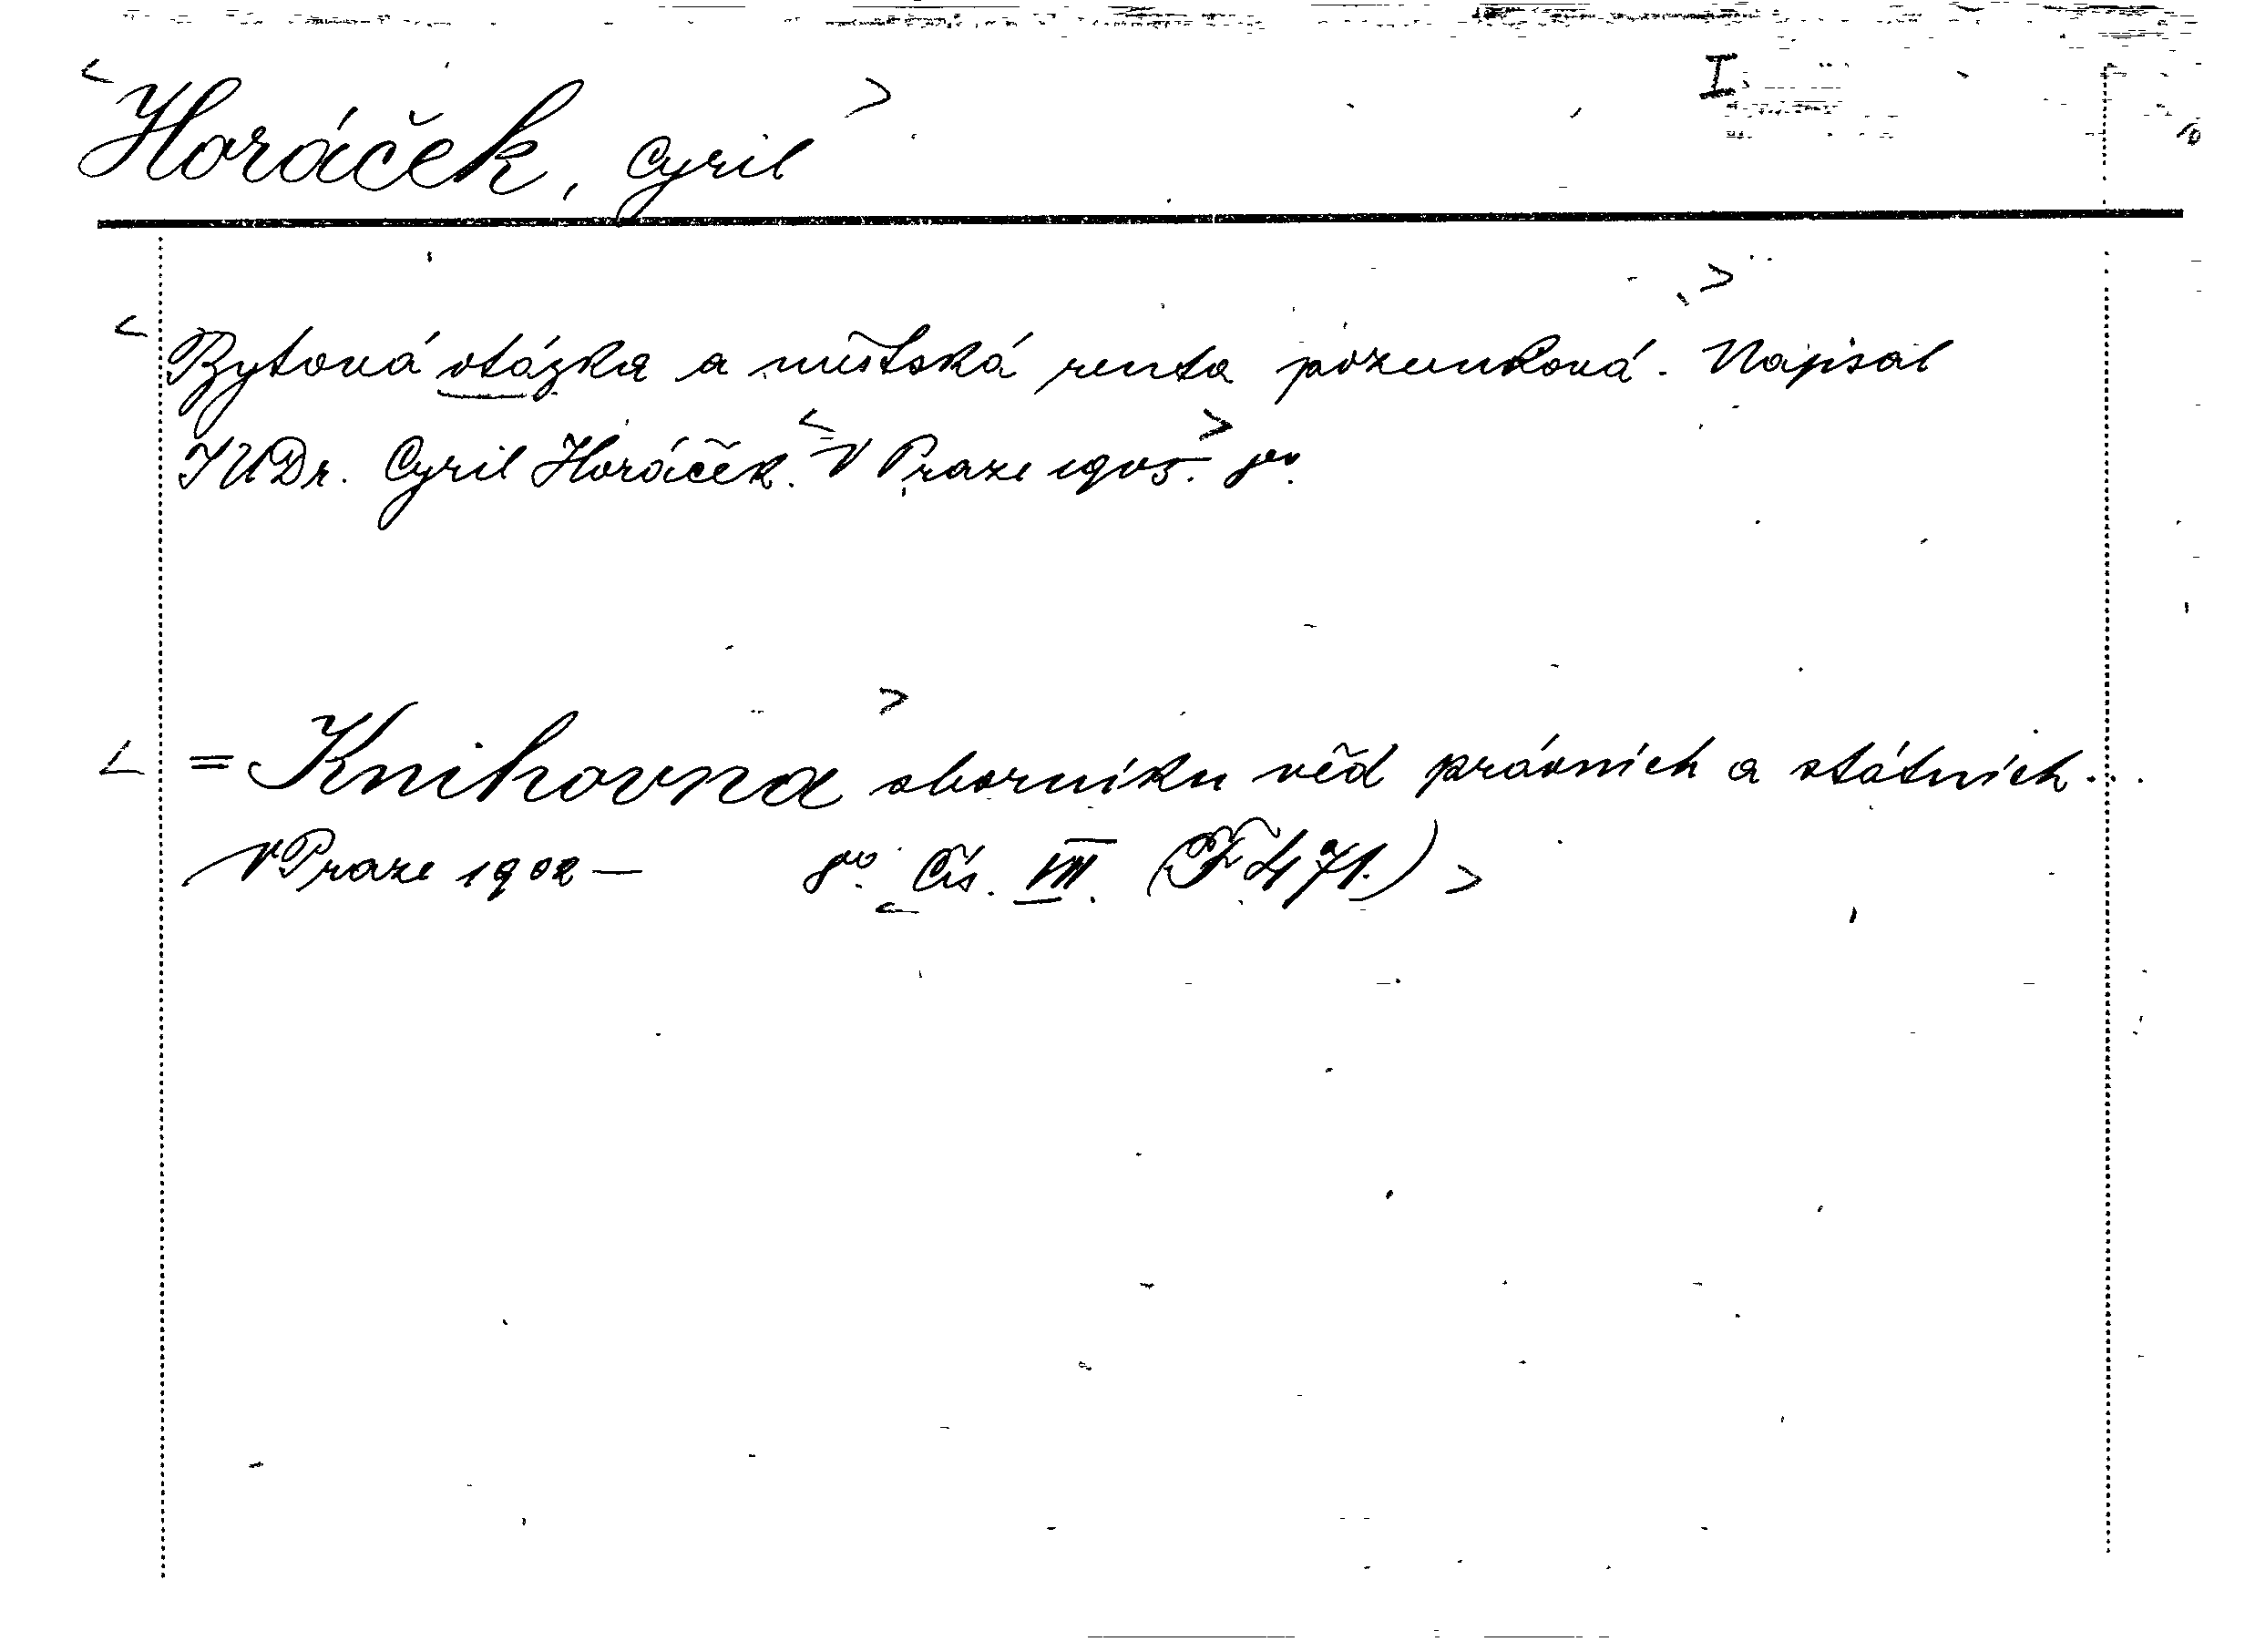 < Horáček, Cyril > I
< Bytová otázka a místská renta pozemková. > Napsal
JUDr. Cyril Horáček. < V Praze 1905. > 8º.
< = Knihovna > sborníku věd právních a státních...
V Praze 1902 — 8º. < Čís. VIII. (F 471.) >